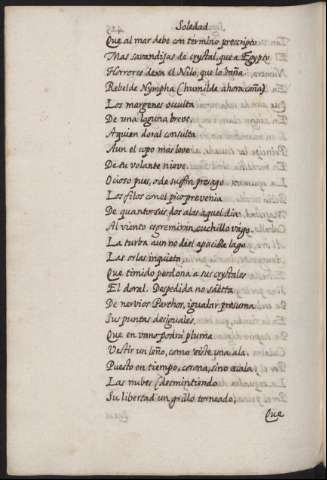 Soledad
Que al mar debe con termino prescripto
Mas savandijas de crystal, que a Egypto
Horrores dexa el Nilo, que lo baña
Rebelde Nympha (humilde ahora caña)
Los margenes occulta
De una laguna breve,
A quien doral consulta
Aun el copo mas leve
De tu volante nieve.
Ocioso pues, o de su fin presago
Los filos con el pico prevenia
De quanto sus dos alas aquel dia
Al viento esgremiran, cuchillo vago.
La turba aun no del apacible lago
Las orlas inquieta,
Que timido perdona a sus crystales
El doral. Despedida no saetta
De nervios Parthos, igualar presuma
Sus puntas desiguales,
Que en vano podrà pluma
Vestir un leño, como viste una ala.
Puesto en tiempo, corona, sino escala
Las nubes (desmintiendo
Su libertad un grillo torneado,
Que